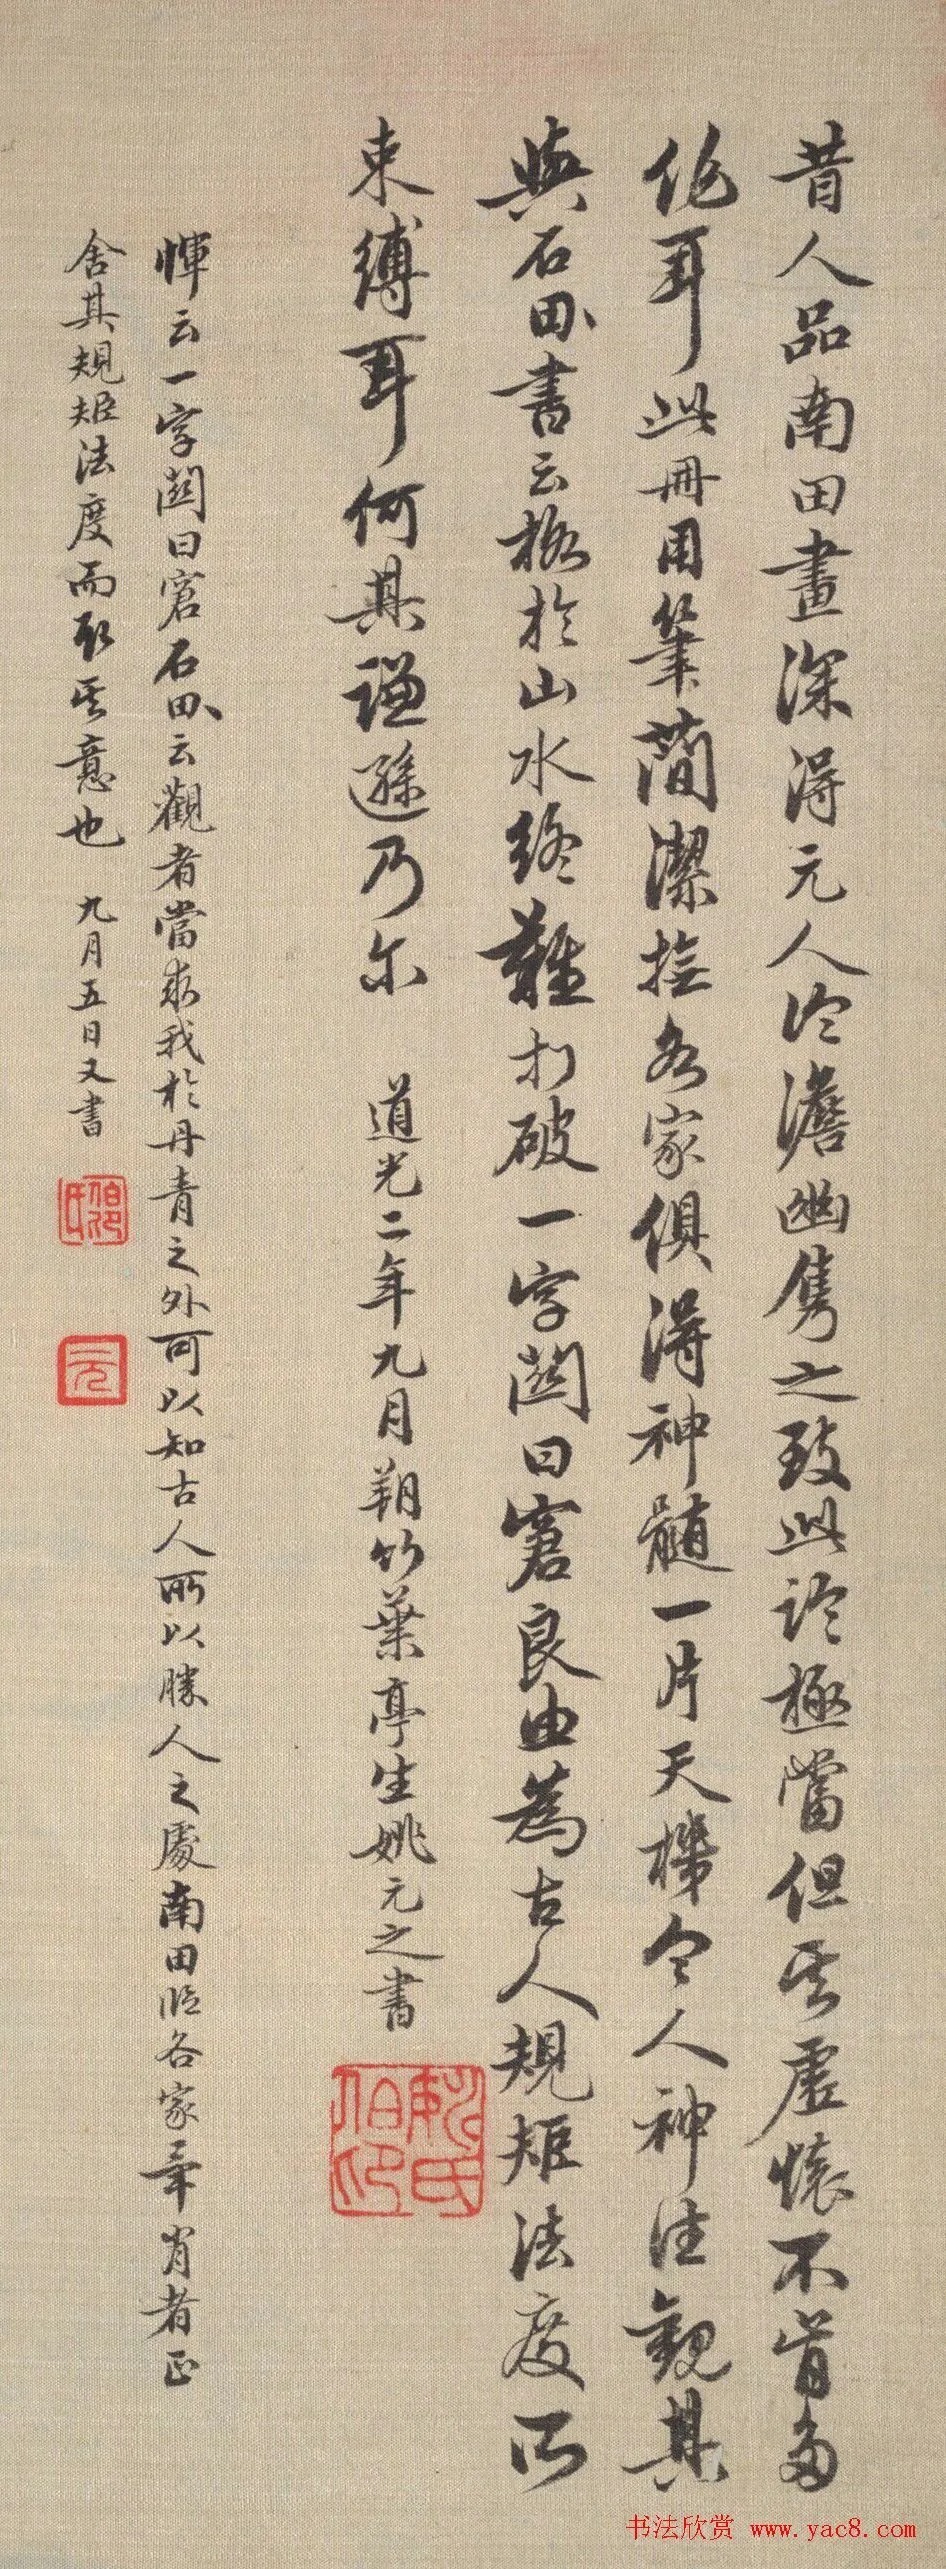 昔人品南田畫深得元人冷澹幽雋之致此論極當但其虛懷不肯多
作耳此冊用筆簡潔撫各家俱得神髓一片天機令人神往觀其
與石田書云格於山水終難打破一字關曰窘良由為古人規矩法度所
束縛耳何其謙遜乃尔 道光二年九月朔竹葉亭生姚元之書
惲云一字關曰窘石田云觀者當求我於丹青之外可以知古人所以勝人之處南田臨各家畢肖者正
舍其規矩法度而取其意也 九月五日又書
伯印
元
书法欣赏 www.yac8.com